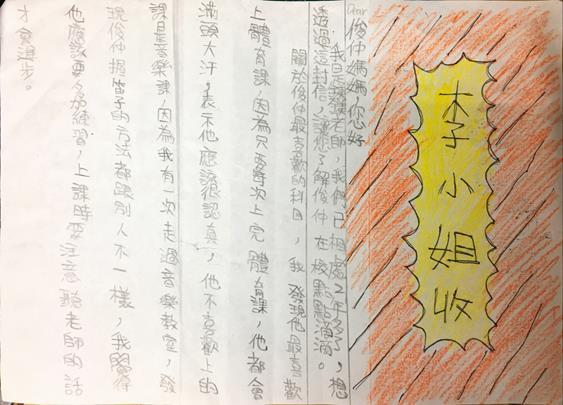 李小姐收
Dear
俊仲媽媽,您好
我是老師,我們已相處2年多了,想
透過這封信,讓您了解俊仲在校點點滴滴。
關於俊仲最喜歡的科目,我發現他最喜歡
上體育課,因為只要每次上完體育課,他都會
滿頭大汗,表示他應該很認真,他不喜歡上的
課是音樂課,因為我有一次走過音樂教室,發
現俊仲握笛子的方法都跟別人不一樣,我覺得
他應該要多加練習,上課時要注意聽老師的話
才會進步。